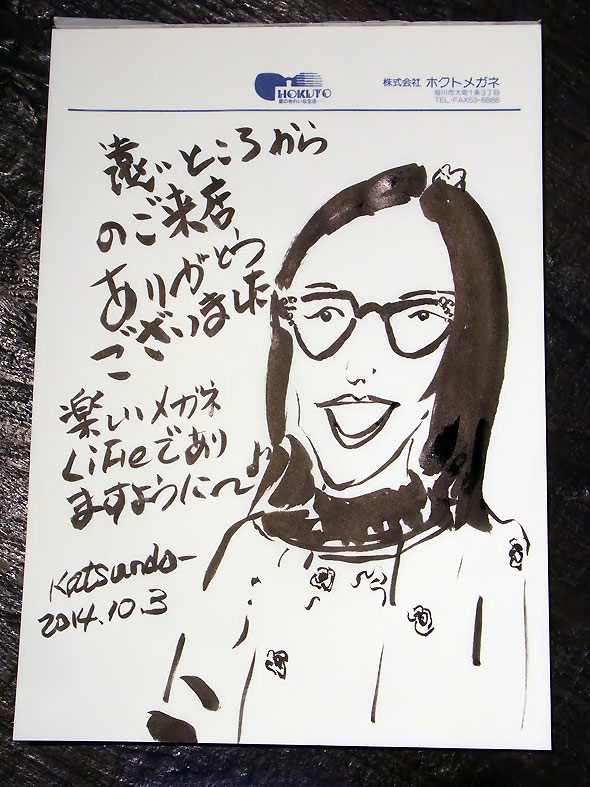 HOKUTO
星のきれいな生活
株式会社 ホクトメガネ
旭川市大町1条3丁目
TEL・FAX53-8886
遠いところから
のご来店
ありがとう
ございました
楽しいメガネ
Lifeであり
ますように〜♪
Katsundo-
2014.10.3